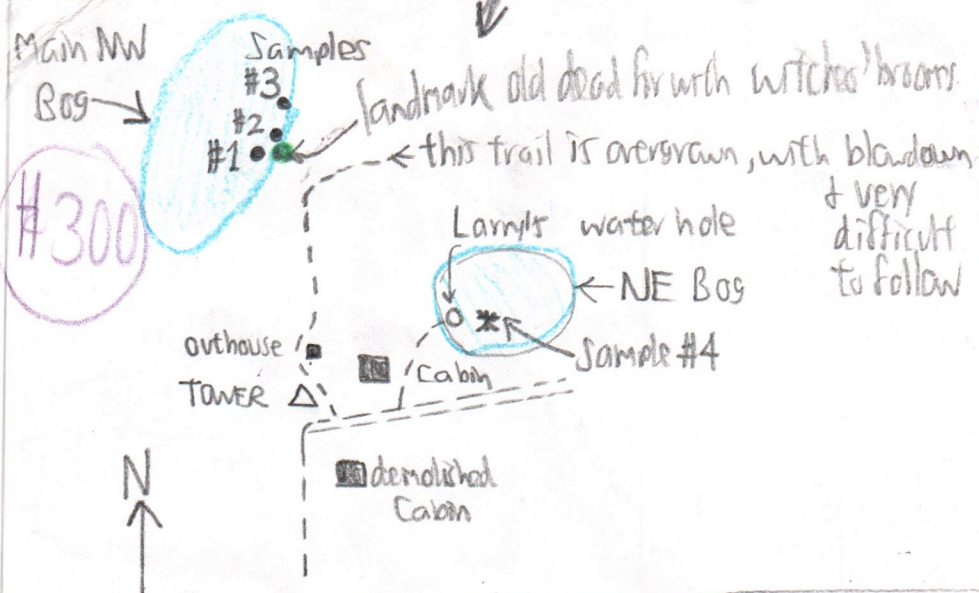 Main NW
Bog
Samples
#3
#2
#1
landmark old dead fir with witches' brooms
this trail is overgrown, with blowdown
& very
difficult
to follow
#300
Larry's water hole
NE Bog
Sample #4
outhouse
TOWER
Cabin
N
demolished
Cabin